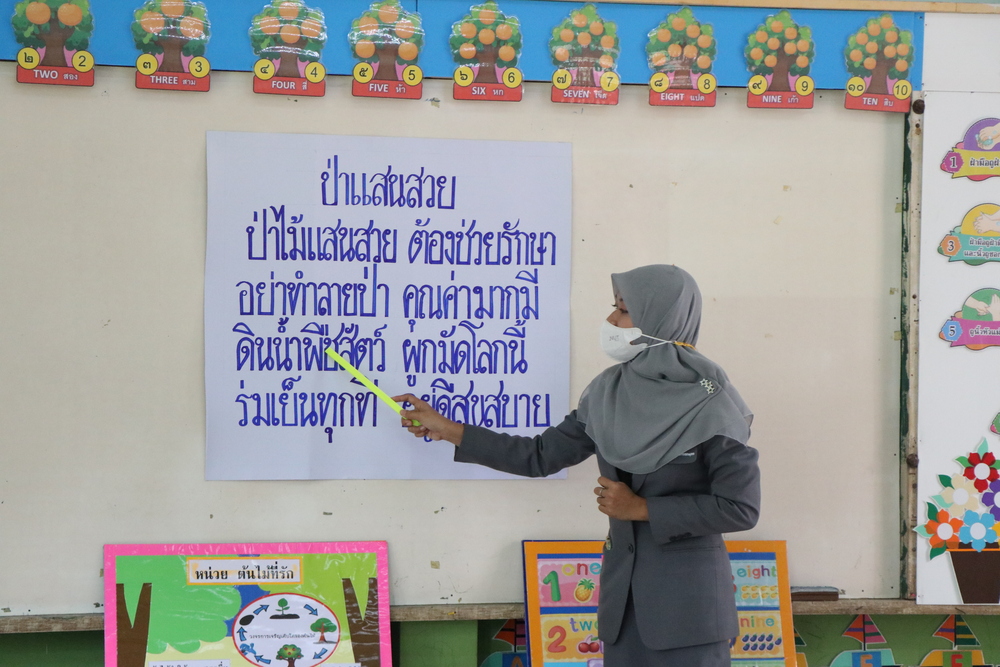 ๒ 2
TWO สอง
๓ 3
THREE สาม
๔ 4
FOUR สี่
๕ 5
FIVE ห้า
๖ 6
SIX หก
๗ 7
SEVEN เจ็ด
๘ 8
EIGHT แปด
๙ 9
NINE เก้า
๑๐ 10
TEN สิบ
ป่าแสนสวย
ป่าไม้แสนสวย ต้องช่วยรักษา
อย่าทำลายป่า คุณค่ามากมี
ดินน้ำพืชสัตว์ ผูกมัดโลกนี้
ร่มเย็นทุกที่ อยู่ดีสุขสบาย
1
3
5
หน่วย ต้นไม้ที่รัก
one
1
2
eight
nine